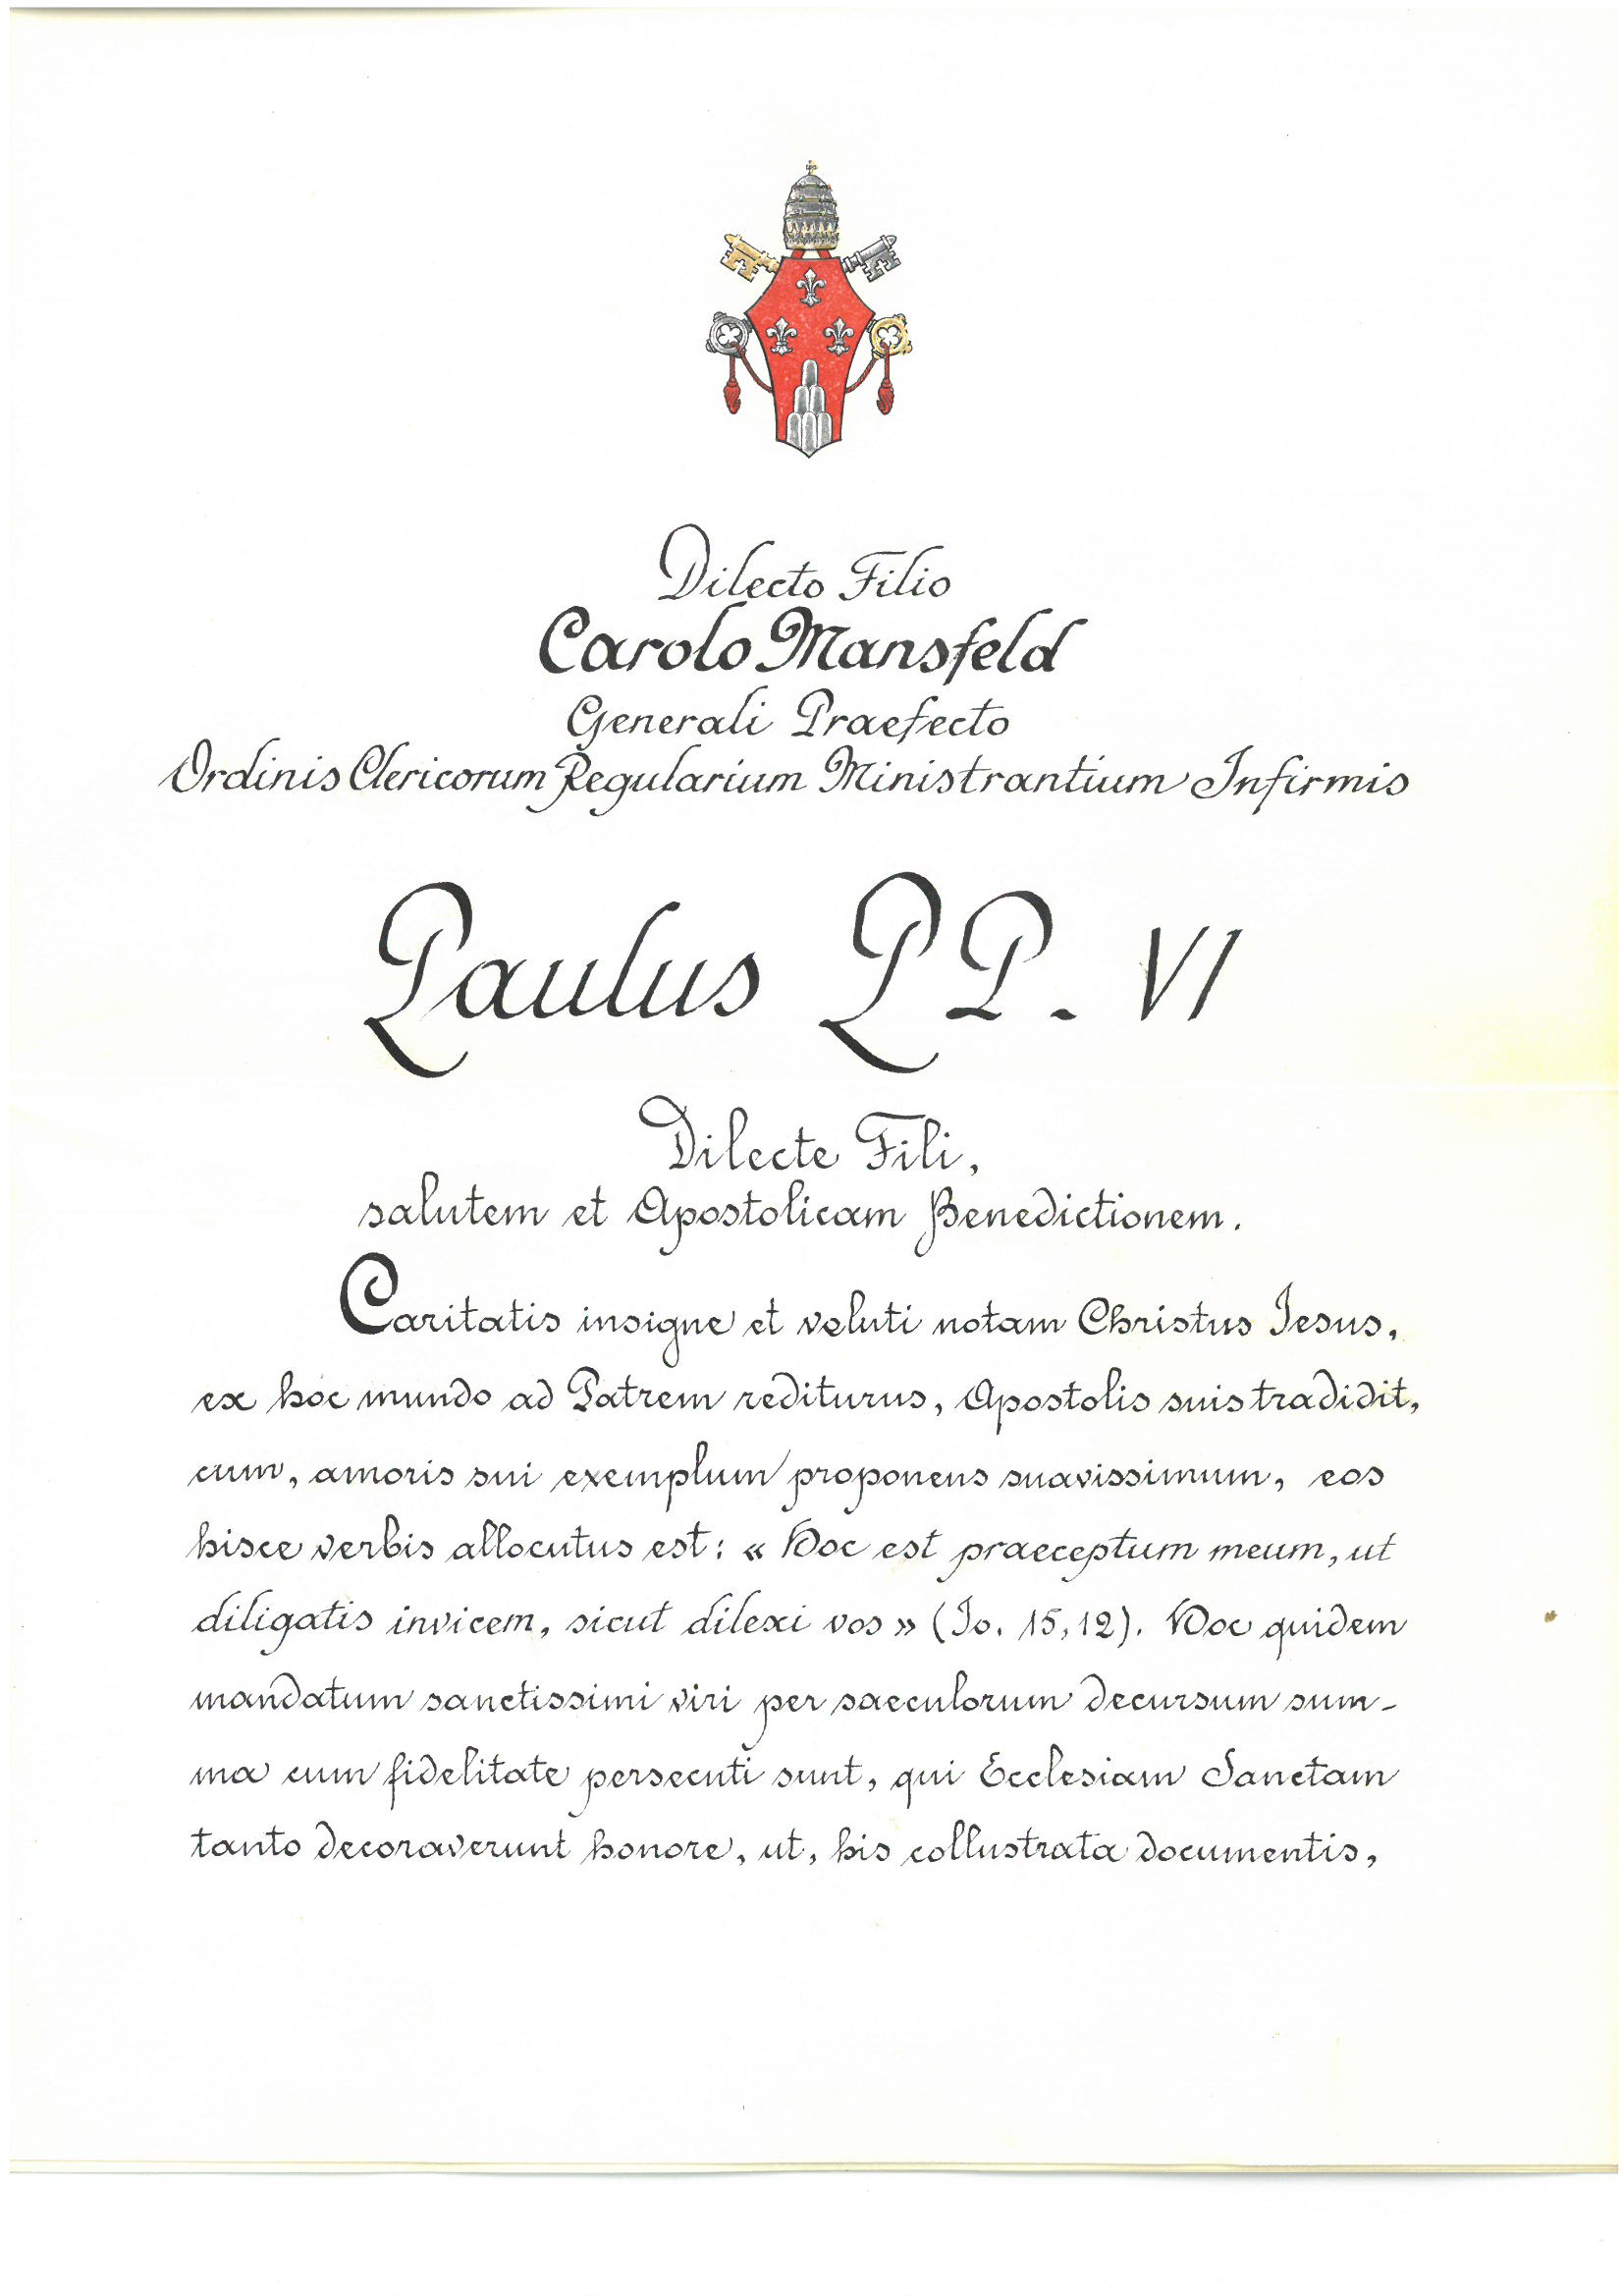 Dilecto Filio
Carolo Mansfeld
Generali Praefecto
Ordinis Clericorum Regularium Ministrantium Infirmis
Paulus PP. VI
Dilecte Fili,
salutem et Apostolicam Benedictionem.
Caritatis insigne et veluti notam Christus Iesus,
ex hoc mundo ad Patrem rediturus, Apostolis suis tradidit,
cum, amoris sui exemplum proponens suavissimum, eos
hisce verbis allocutus est: « Hoc est praeceptum meum, ut
diligatis invicem, sicut dilexi vos » (Io. 15, 12). Hoc quidem
mandatum sanctissimi viri per saeculorum decursum sum-
ma cum fidelitate persecuti sunt, qui Ecclesiam Sanctam
tanto decoraverunt honore, ut, his collustrata documentis,